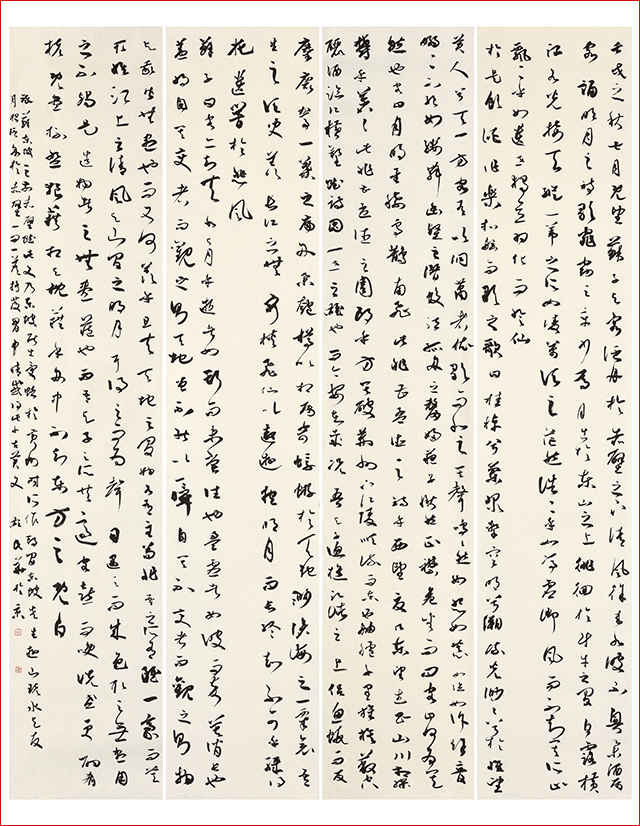 壬戌之秋七月既望蘇子與客泛舟於赤壁之下清風徐來水波不興舉酒屬
客誦明月之詩歌窈窕之章少焉月出於東山之上徘徊於斗牛之間白露橫
江水光接天縱一葦之所如凌萬頃之茫然浩浩乎如馮虛御風而不知其所止
飄飄乎如遺世獨立羽化而登仙
於是飲酒樂甚扣舷而歌之歌曰桂棹兮蘭槳擊空明兮溯流光渺渺兮於懷望
美人兮天一方客有吹洞簫者依歌而和之其聲嗚嗚然如怨如慕如泣如訴餘音
嫋嫋不絕如縷舞幽壑之潛蛟泣孤舟之嫠婦蘇子愀然正襟危坐而問客曰何為其
然也客曰月明星稀烏鵲南飛此非曹孟德之詩乎西望夏口東望武昌山川相繆
鬱乎蒼蒼此非孟德之困於周郎者乎方其破荊州下江陵順流而東也舳艫千里旌旗蔽空
釃酒臨江橫槊賦詩固一世之雄也而今安在哉況吾與子漁樵江渚之上侶魚蝦而友
麋鹿駕一葉之扁舟舉匏樽以相屬寄蜉蝣於天地渺滄海之一粟哀吾
生之須臾羨長江之無窮挾飛仙以遨遊抱明月而長終知不可乎驟得
託遺響於悲風
蘇子曰客亦知夫水與月乎逝者如斯而未嘗往也盈虛者如彼而卒莫消長也
蓋將自其變者而觀之則天地曾不能以一瞬自其不變者而觀之則物
與我皆無盡也而又何羨乎且夫天地之間物各有主苟非吾之所有雖一毫而莫
取惟江上之清風與山間之明月耳得之而為聲目遇之而成色取之無禁用
之不竭是造物者之無盡藏也而吾與子之所共適客喜而笑洗盞更酌肴
核既盡杯盤狼藉相與枕藉乎舟中不知東方之既白
錄蘇東坡之前赤壁賦此文乃東坡先生